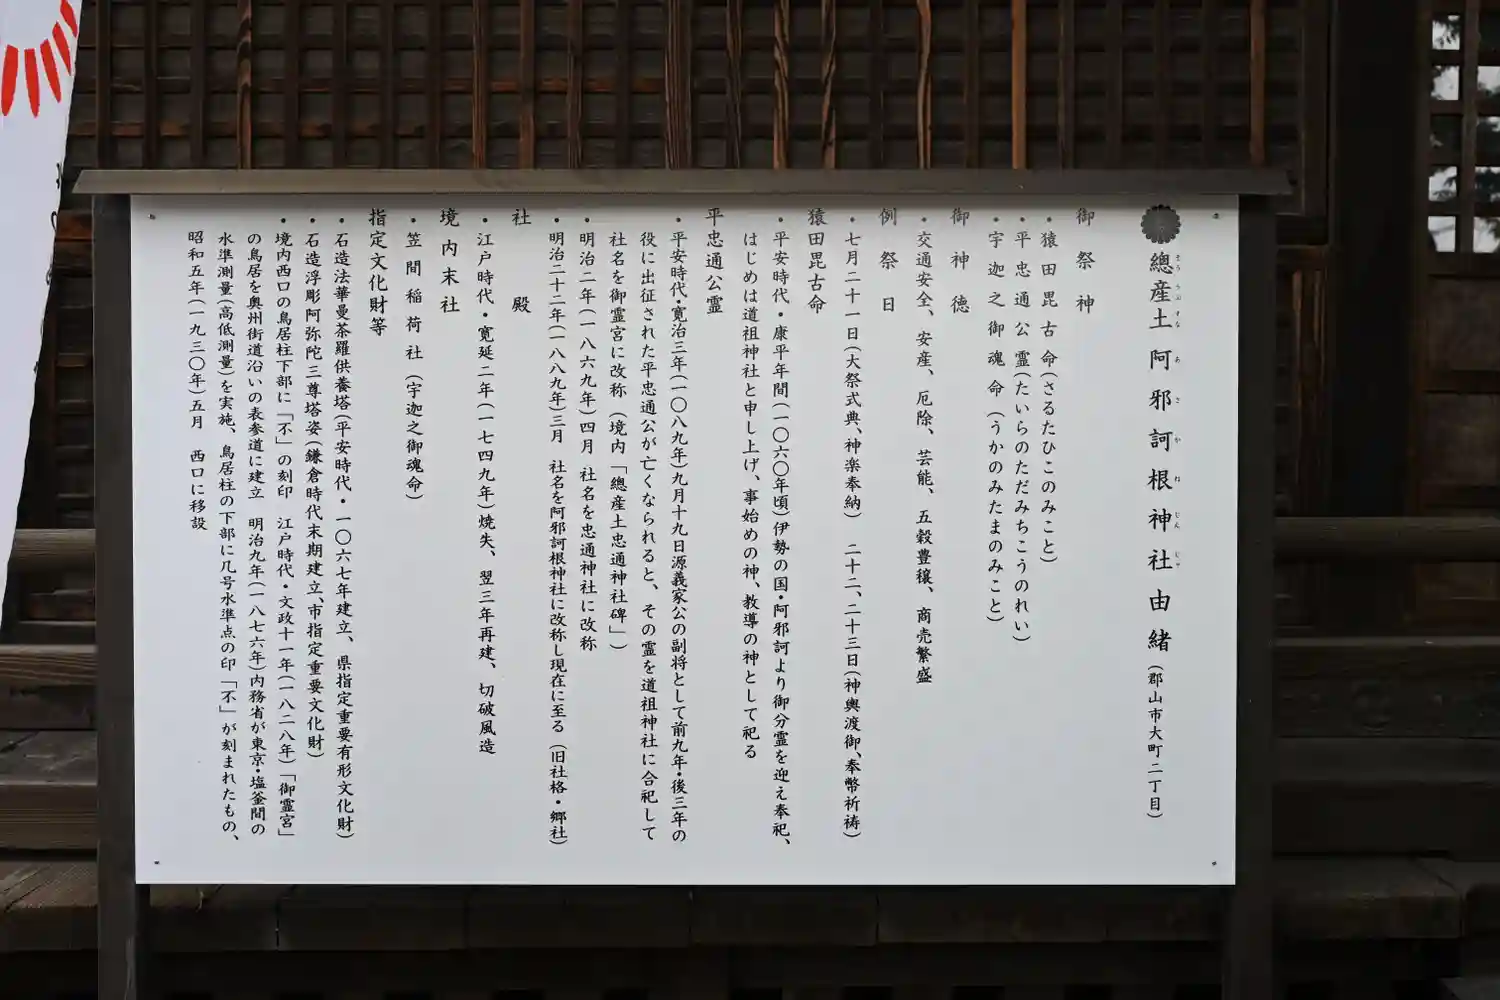 總産土 阿邪訶根神社由緒（郡山市大町二丁目）
そううぶすな あさかねじんじゃ
御祭神
・猿田毘古命（さるたひこのみこと）
・平忠通公霊（たいらのただみちこうのれい）
・宇迦之御魂命（うかのみたまのみこと）
御神徳
・交通安全、安産、厄除、芸能、五穀豊穣、商売繁盛
例祭日
・七月二十一日（大祭式典、神楽奉納）　二十二、二十三日（神輿渡御、奉幣祈祷）
猿田毘古命
・平安時代・康平年間（一〇六〇年頃）伊勢の国・阿邪訶より御分霊を迎え奉祀、
はじめは道祖神社と申し上げ、事始めの神、教導の神として祀る
平忠通公霊
・平安時代・寛治三年（一〇八九年）九月十九日源義家公の副将として前九年・後三年の
役に出征された平忠通公が亡くなられると、その霊を道祖神社に合祀して
社名を御霊宮に改称（境内「總産土忠通神社碑」）
・明治二年（一八六九年）四月 社名を忠通神社に改称
・明治二十二年（一八八九年）三月　社名を阿邪訶根神社に改称し現在に至る（旧社格・郷社）
社殿
・江戸時代・寛延二年（一七四九年）焼失、翌三年再建、切破風造
境内末社
・笠間稲荷社（宇迦之御魂命）
指定文化財等
・石造法華曼荼羅供養塔（平安時代・一〇六七年建立、県指定重要有形文化財）
・石造浮彫阿弥陀三尊塔姿（鎌倉時代末期建立、市指定重要文化財）
・境内西口の鳥居柱下部に「不」の刻印　江戸時代・文政十一年（一八二八年）「御霊宮」
の鳥居を奥州街道沿いの表参道に建立　明治九年（一八七六年）内務省が東京・塩釜間の
水準測量（高低測量）を実施、鳥居柱の下部に几号水準点の印「不」が刻まれたもの、
昭和五年（一九三〇年）五月　西口に移設